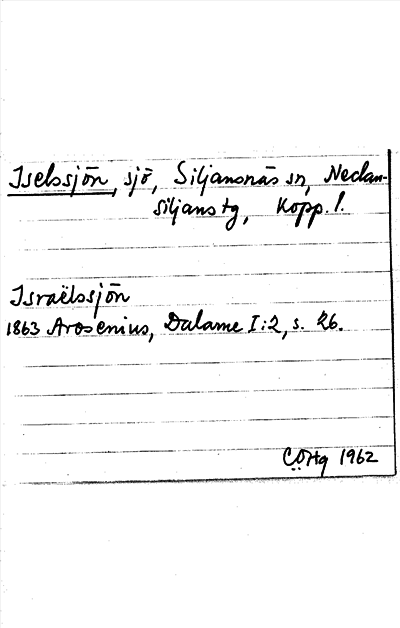 Iselssjön, sjö, Siljansnäs sn, Nedan-
siljans tg, Kopp. l.
Israëlssjön
1863 Arosenius, Dalarne I:2, s. 26.
CÖHg 1962